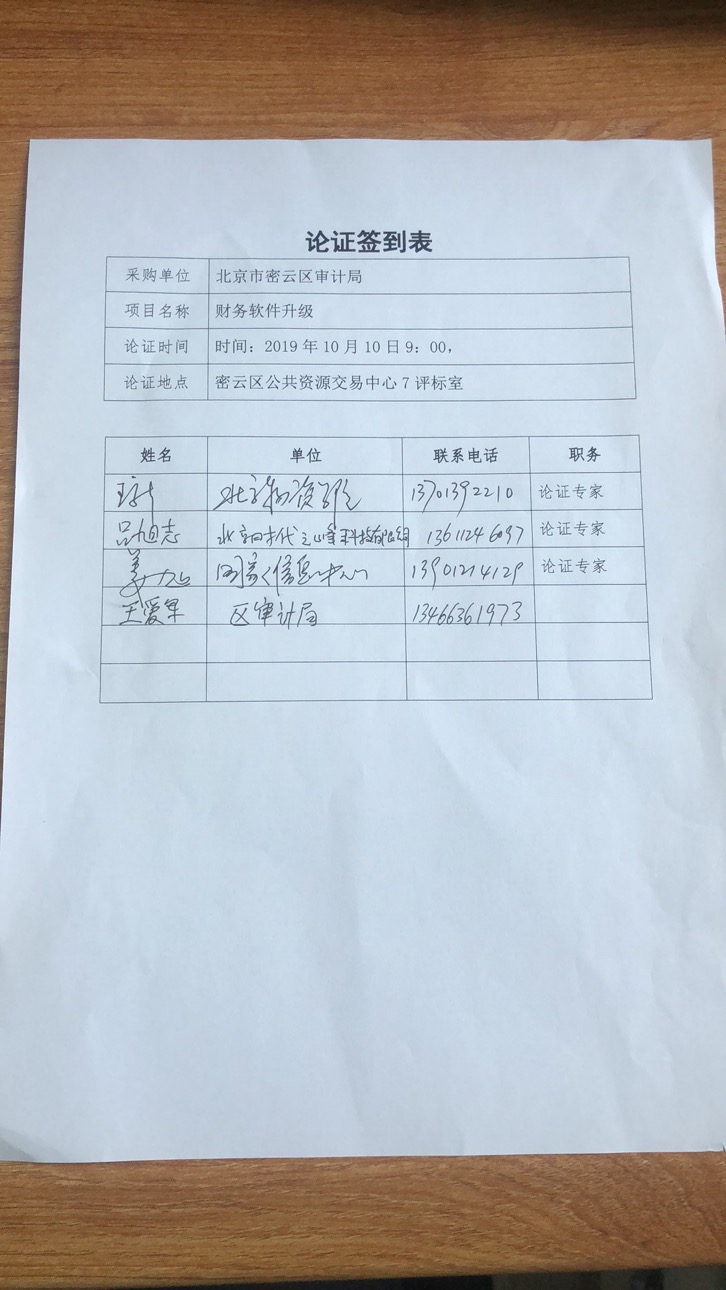 论证签到表
采购单位 北京市密云区审计局
项目名称 财务软件升级
论证时间 时间：2019年10月10日9：00，
论证地点 密云区公共资源交易中心7评标室
姓名 单位 联系电话 职务
北京物资学院 13701392210 论证专家
吕旭志 北京时代之峰科技有限公司 13611246097 论证专家
姜 国家信息中心 13901214129 论证专家
王爱军 区审计局 13466361973